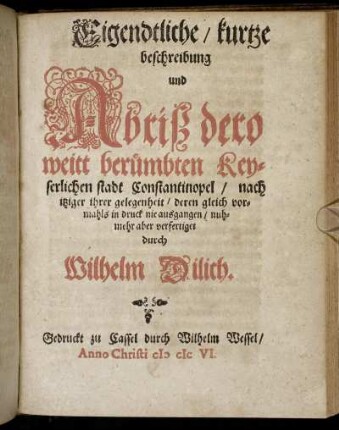 Eigendtliche / kurtze
beschreibung
und
Abriß dero
weitt berümbten Key-
serlichen stadt Constantinopel / nach
itziger ihrer gelegenheit / deren gleich vor-
mahls in druck nie ausgangen / nuh-
mehr aber verfertiget
durch
Wilhelm Dilich.
Gedruckt zu Cassel durch Wilhelm Wessel /
Anno Christi cIɔ cIc VI.